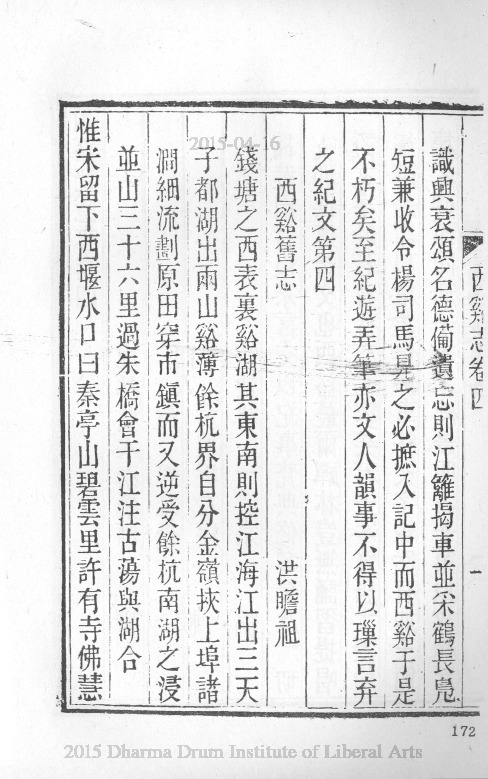 西谿志卷四
一
識興衰頌名德備遺忘則江籬揭車並采鶴長鳧
短兼收令楊司馬見之必摭入記中而西谿于是
不朽矣至紀遊弄筆亦文人韻事不得以璅言弃
之紀文第四
西谿舊志 洪瞻祖
錢塘之西表裏谿湖其東南則控江海江出三天
子都湖出兩山谿薄餘杭界自分金嶺挾上埠諸
澗細流劃原田穿市鎮而又逆受餘杭南湖之浸
並山三十六里過朱橋會于江注古蕩與湖合
惟宋留下西堰水口曰秦亭山碧雲里許有寺佛慧
172
2015-04-16
2015 Dharma Drum Institute of Liberal Arts